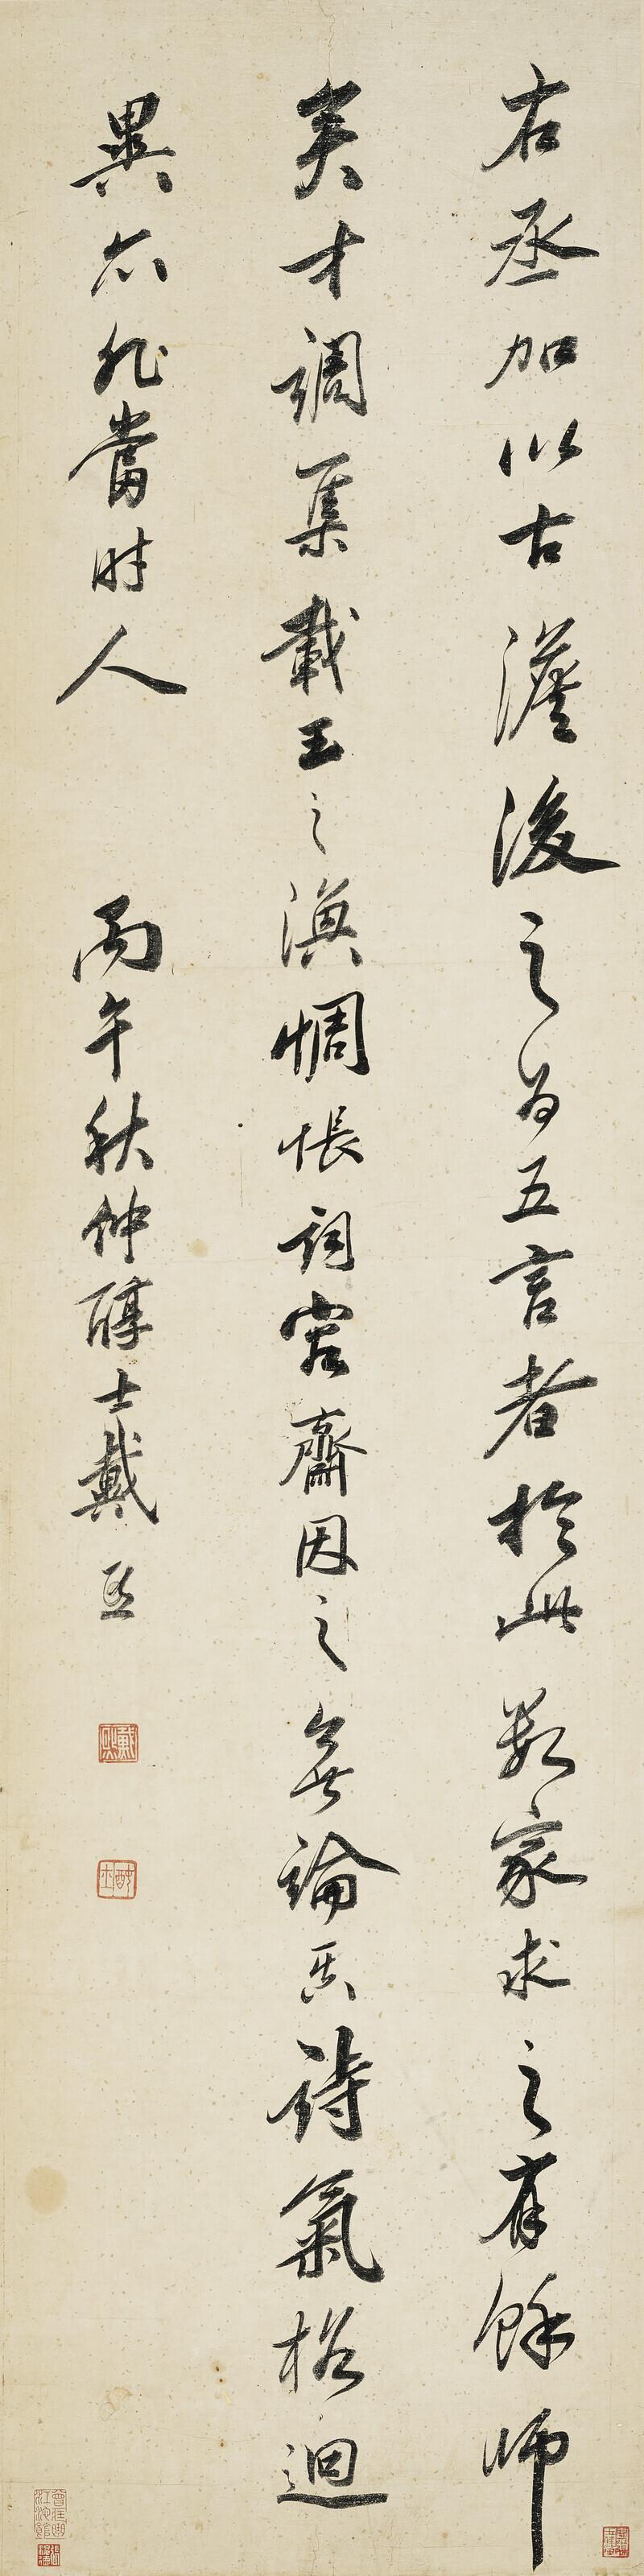 右丞加以古澹後之為五言者於此數家求之有餘師
矣才調集載王之渙惆悵詞容齋因之無論其詩氣格迥
異亦非當時人
丙午秋仲醇士戴熙
戴熙
醇士